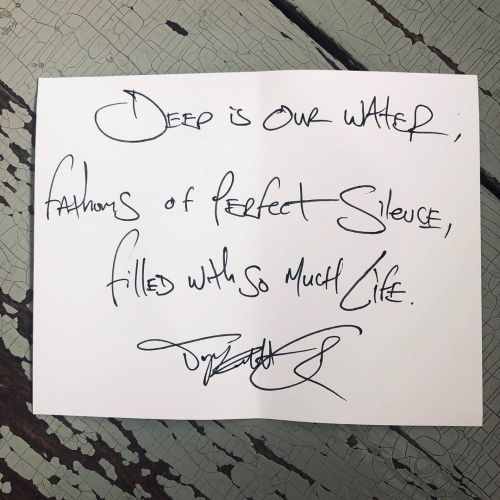 Deep is our water,
fathoms of perfect silence,
filled with so much life.